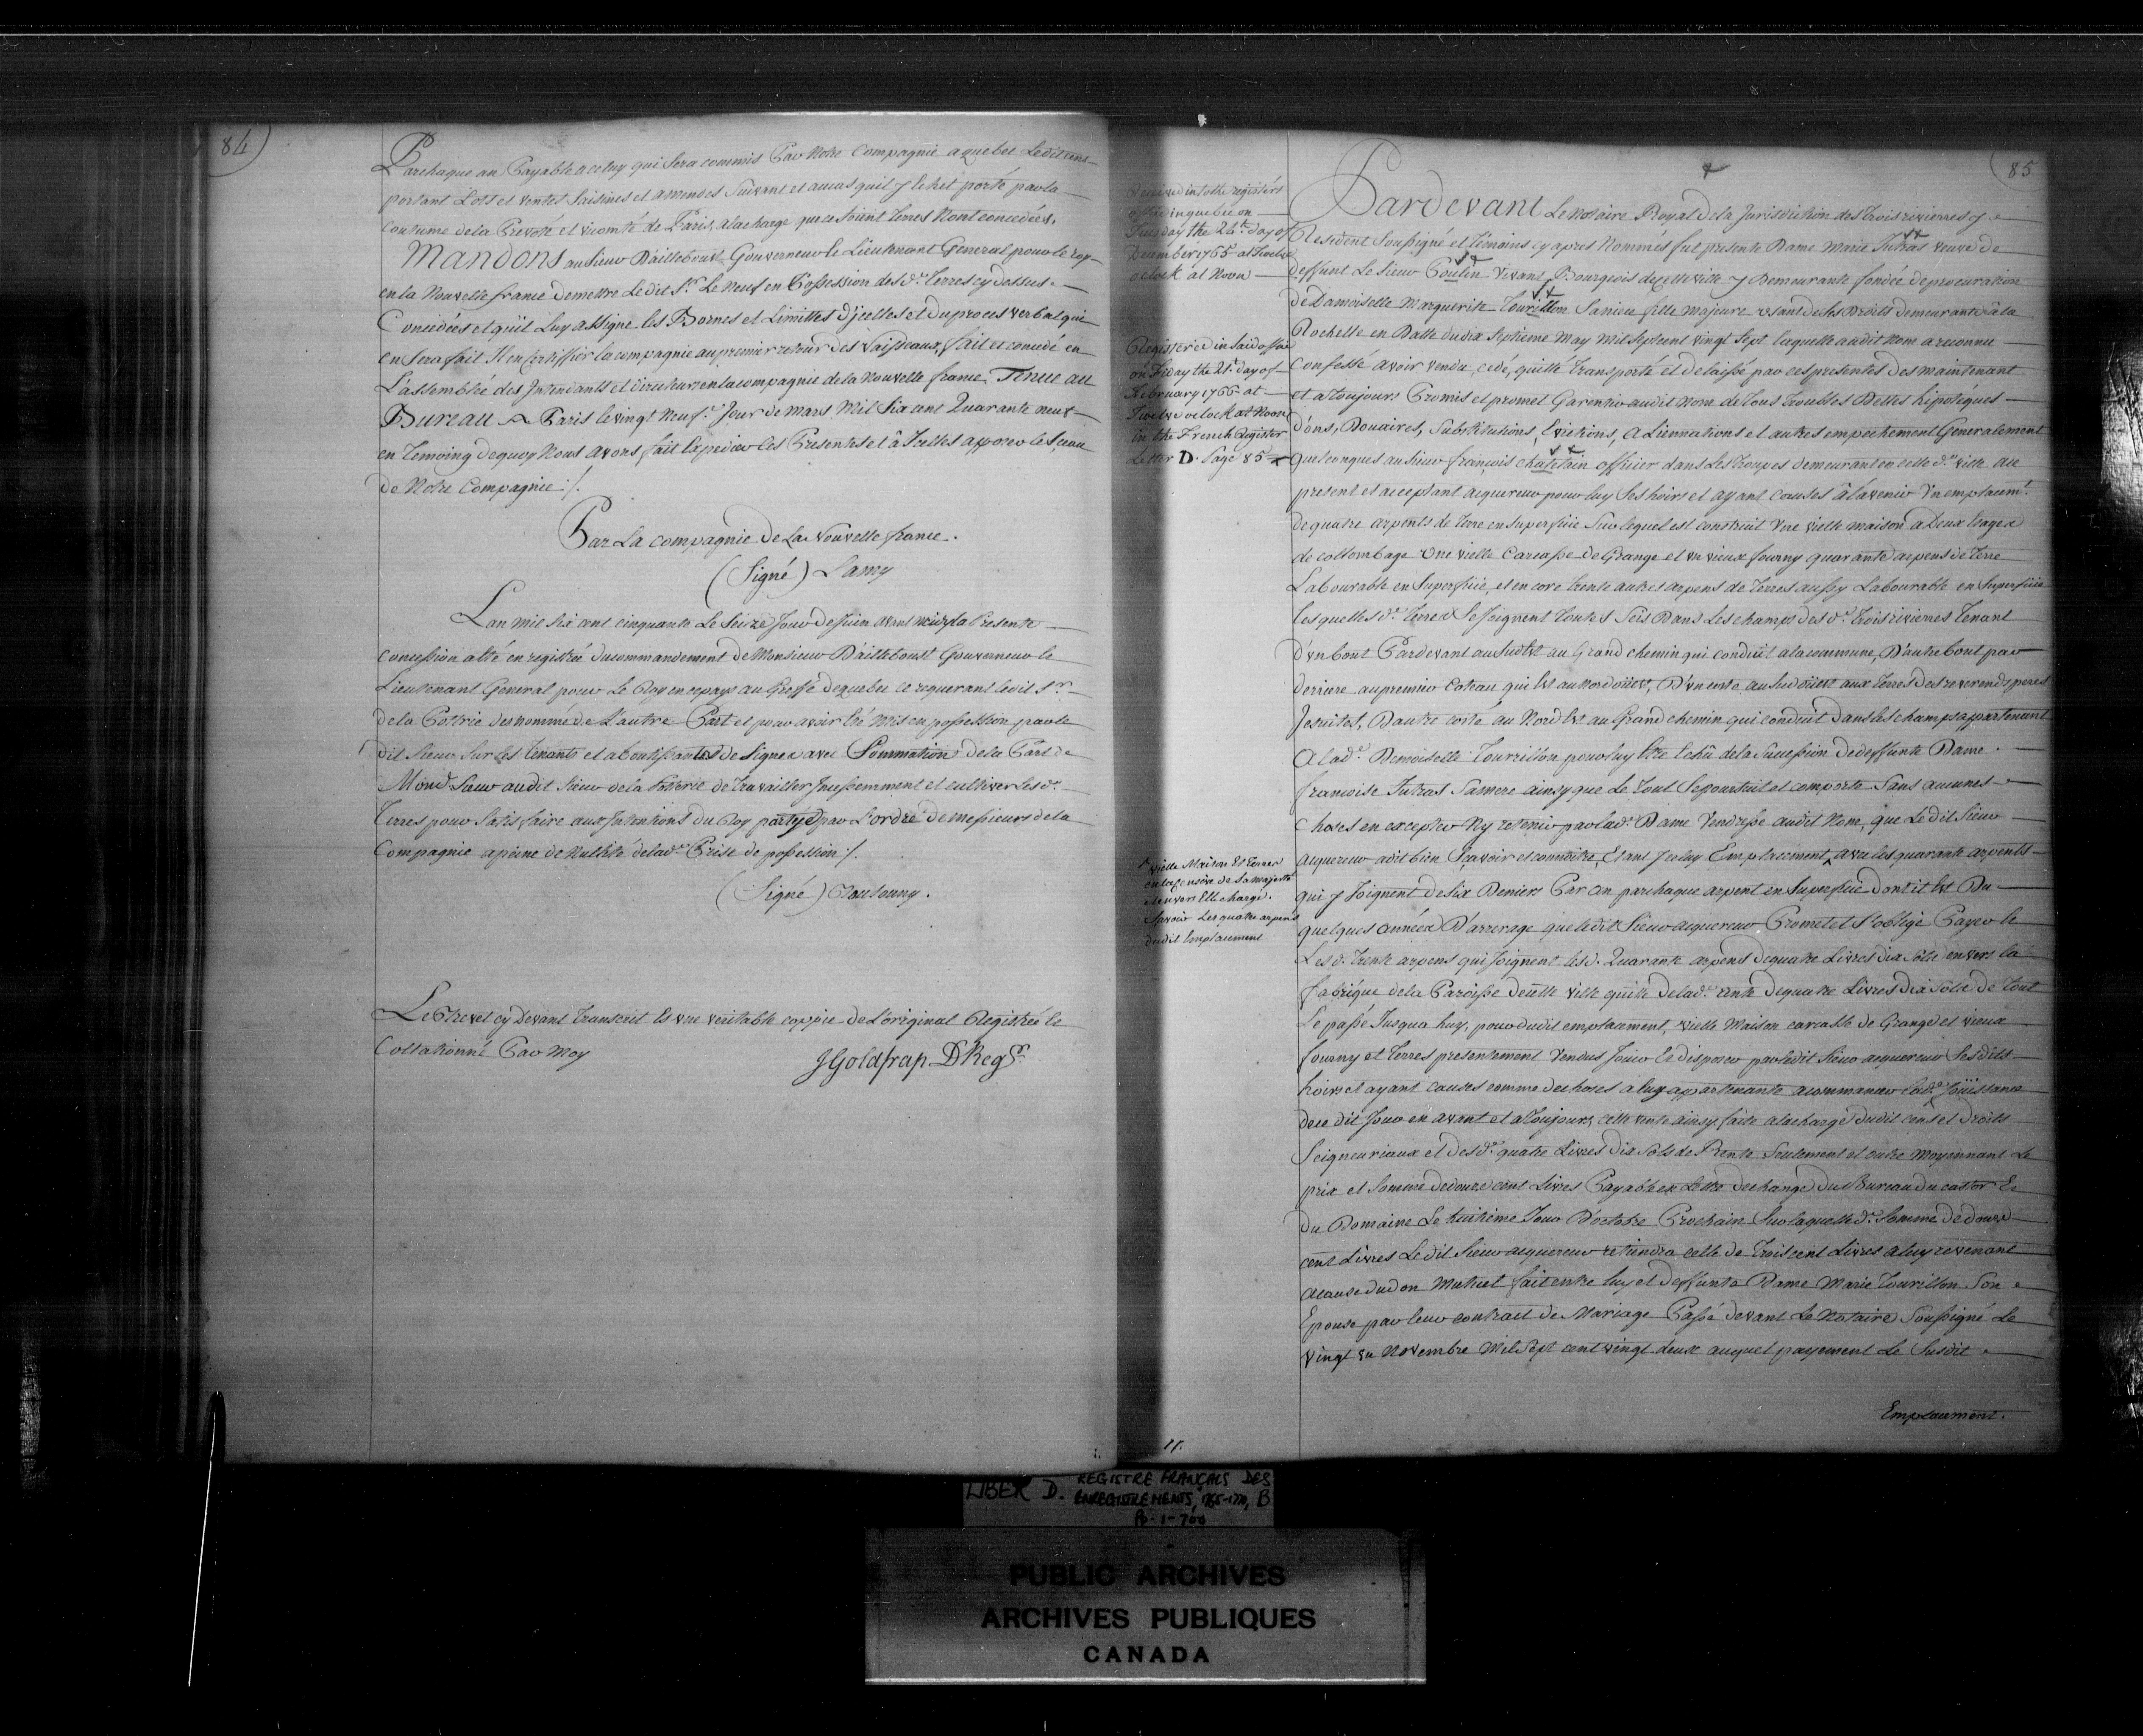 84
Par chaque an Payable a celuy qui Sera commis Par Notre Compagnie a quebec Ledit cens
portant Lots et Ventes Saisines et amendes Suivant et au cas quil y Echet porté par la
coutume de la Prevoté et vicomté de Paris, a la charge que ce Soient Terres Nont concedées.
Mandons au Sieur Dailleboust Gouverneur le Lieutenant General pour le roy
en la Nouvelle france de mettre Le dit Sr. Le Neuf en Possession des de. Terres cy dessus
Concedées et quil Luy assigne les Bornes et Limittes d'jcelles et du proces verbal qui
en Sera fait Il en Certiffier la compagnie au premier retour des Vaisseaux, fait et concedé en
L'assemblée des Intendants et directeurs en la compagnie de la Nouvelle france Tenue au
Bureau a Paris le vingt Neuf.e Jour de Mars Mil Six cent Quarante neuf
en Temoing de quoy Nous avons fait Expedier les Presentes et à Icelles apposer le Sceau
de Notre Compagnie ./.
Par La compagnie De La Nouvelle france.
(Signé) Lamy
Lan mil Six cent cinquante Le Seize Jour de Juin La Presente
Concession a été en registrée du commandement de Monsieur D'ailleboust Gouverneur le
Lieutenant General pour Le Roy en ce pays au Greffe de quebec ce requerant ledit Sr.
de la Pottrie denommé de L'autre Part et pour avoir Eté Mis en possession par le
dit Sieur Sur les Tenants et aboutissants de Signes avec Sommation de la Part de
Mond. Sieur au dit Sieur de la Potterie de Travailler Incessemment et cultiver les de.
Terres pour Satisfaire aux Intentions du Roy par L'ordre de Messieurs de la
Compagnie a peine de Nullité de lade. Prise de possession ./.
(Signé)
Le Brevet cy Devant Transcrit Es vne veritable coppie de L'original Registrée le
Collationné Par Moy
JGoldfrap DRegr.
85
Received into the registers
office in quebec on
Tuesday the 24.t day of
December 1765 at Twelve
oclock at Noon
Registered in Said office
on Friday the 21.t day of
February 1766 at
Twelve oclock at Noon
in the French Register
Letter D. Page 85
Pardevant Le Notaire Royal de la Jurisdiction des Trois rivierres y
Resident Soussigné et Témoins cy apres Nommés fut presente Dame Marie Jutras veuve de
deffunt Le Sieur Poulin Vivant Bourgeois de cette ville y Demeurante fondée de procuration
de Damoiselle Marguerite Tourillon Sa niece fille majeure usant de Ses Droits demeurante à la
Rochelle en Datte du dix Septieme May Mil Sept cent vingt Sept laquelle audit Nom a reconnu
Confessé avoir vendu, cedé, quitté transporté et delaissé par ces presentes des maintenant
et a Toujours Promis et promet Garentir audit Nom de Tous Troubles Dettes hipoteques
dons, Douaires, Substitutions, Evictions, aLiennations et autres empechement Generalement
quelconques au Sieur françois chatelain officier dans Les Troupes demeurant en cette de. ville au
present et acceptant acquereur pour luy Ses hoirs et ayant causes à l'avenir Un emplacemt.
de quatre arpents de Terre en Superficie Sur lequel est construit Une vielle maison a Deux Etages
de collombage Une vielle Carcasse de Grange et un vieux fourny quarante arpens de Terre
Labourable en Superficie, et en core trente autres arpens de Terres aussy Labourable en Superficie
les quelles de. Terres Se Joignent toutes Scis Dans Les champs des de. Trois rivierres Tenant
d'un bout Par devant au Sudest au Grand chemin qui conduit a la commune, D'autre bout par
derriere au premier Coteau qui Est au Nordouest, D'un costé au Sudouest aux Terres des reverends peres
Jesuites, Dautre costé au Nord Est au Grand chemin qui conduit dans les champs appartenant
a lade. Demoiselle Tourillon pour luy Etre Echû de la Succession de deffunte Dame
francoise Jutras Sa mere ainsy que Le Tout Se poursuit et comporte Sans aucunes
choses en excepter Ny retenir par lade. Dame Vendresse audit Nom, que Le dit Sieur
acquereur a dit bien Scavoir et connoitre, Etant Jceluy Emplacement avec les quarante arpents
vielle Maison Et Terres
en la censive de Sa majesté
Et envers Elle chargé.
Scavoir Les quatre arpens
dudit Emplacement
qui y Joignent de Six Deniers Par an par chaque arpent en Superficie dont il Est Du
quelques années D'arrerage que ledit Sieur acquereur Promet et S'oblige Payer Et
Les d. Trente arpens qui Joignent lesd. Quarante arpens de quatre Livres dix Sols envers la
fabrique de la Paroisse de cette ville quitte de lade. rente de quatre Livres dix Sols de Tout
Le passé Jusqua huy, pour dudit emplacement, vielle Maison carcasse de Grange et vieux
fourny et Terres presentement Vendus Jouir et disposer par ledit Sieur acquereur Ses dits
hoirs et ayant causes comme de choses a luy appartenante a commancer lade. Joüissance
de ce dit Jour en avant et a Toujours, cette vente ainsy faite a la charge dudit cens et Droits
Seigneuriaux et des de. quatre Livres dix Sols de Rente Seulement et outre Moyennant Le
prix et Somme de douze cent Livres Payable en Lettre de change du Bureau du castor Et
du Domaine Le huitième Jour D'octobre Prochain Sur laquelle de. Somme de douze
cent Livres Le dit Sieur acquereur retiendra celle de Trois cent Livres a luy revenant
a cause du don Mutuel fait entre luy et deffunte Dame Marie Tourillon Son
Epouse par leur contract de Mariage Passé devant Le Notaire Soussigné Le
vingt un Novembre Mil Sept cent vingt deux auquel payement Le Susdit
Emplacement.
LIBER D. REGISTRE FRANÇAIS DES
ENREGISTREMENTS, 1765-1770, B
Pp. 1-700
PUBLIC ARCHIVES
ARCHIVES PUBLIQUES
CANADA